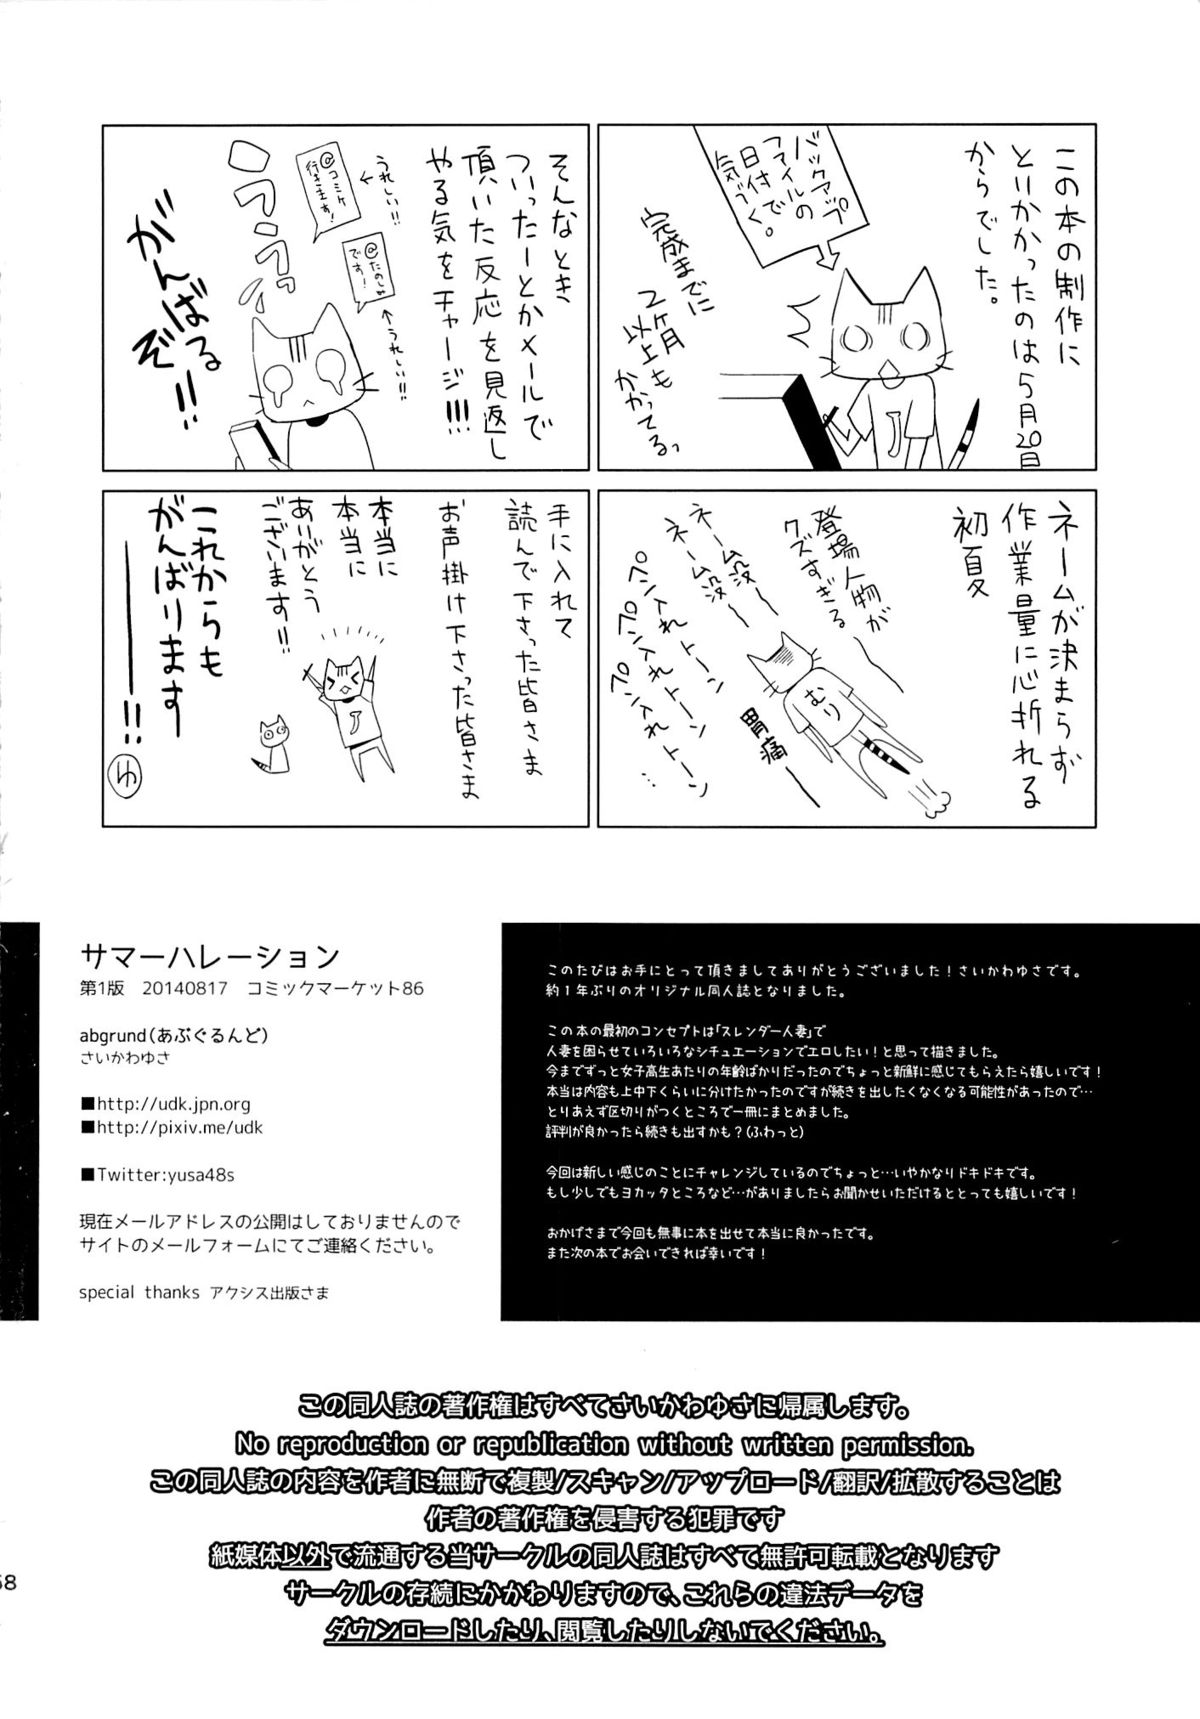 この本の制作に
とりかかったのは5月20日
からでした。
バックアップ
ファイルの
日付で
気づく。
完成までに
2ヶ月
以上も
かかってるっ
そんなとき
ついったーとかメールで
頂いた反応を見返し
やる気をチャージ!!!
うれしい!!
@コミケ
行きます!
@たのしみ
です!
うれしい!!
うっうっうっ
がんばる
ぞ!!
ネームが決まらず
作業量に心折れる
初夏
登場人物が
クズすぎる
ネーム没〜
ネーム没〜
プンイれトーン
プンイれトーン
むり
胃痛〜
手に入れて
読んで下さった皆さま
お声掛け下さった皆さま
本当に
本当に
ありがとう
ございます!!
J
これからも
がんばります
――!!
ゆ
サマーハレーション
第1版 20140817 コミックマーケット86
abgrund(あぶぐるんど)
さいかわゆさ
■http://udk.jpn.org
■http://pixiv.me/udk
■Twitter:yusa48s
現在メールアドレスの公開はしておりませんので
サイトのメールフォームにてご連絡ください。
special thanks アクシス出版さま
このたびはお手にとって頂きましてありがとうございました！さいかわゆさです。
約1年ぶりのオリジナル同人誌となりました。
この本の最初のコンセプトは「スレンダー人妻」で
人妻を困らせていろいろなシチュエーションでエロしたい！と思って描きました。
今までずっと女子高生あたりの年齢ばかりだったのでちょっと新鮮に感じてもらえたら嬉しいです！
本当は内容も上中下くらいに分けたかったのですが続きを出したくなくなる可能性があったので…
とりあえず区切りがつくところで一冊にまとめました。
評判が良かったら続きも出すかも？(ふわっと)
今回は新しい感じのことにチャレンジしているのでちょっと…いやかなりドキドキです。
もし少しでもヨカッタところなど…がありましたらお聞かせいただけるととっても嬉しいです！
おかげさまで今回も無事に本を出せて本当に良かったです。
また次の本でお会いできれば幸いです！
この同人誌の著作権はすべてさいかわゆさに帰属します。
No reproduction or republication without written permission.
この同人誌の内容を作者に無断で複製/スキャン/アップロード/翻訳/拡散することは
作者の著作権を侵害する犯罪です
紙媒体以外で流通する当サークルの同人誌はすべて無許可転載となります
サークルの存続にかかわりますので、これらの違法データを
ダウンロードしたり、閲覧したりしないでください。
58